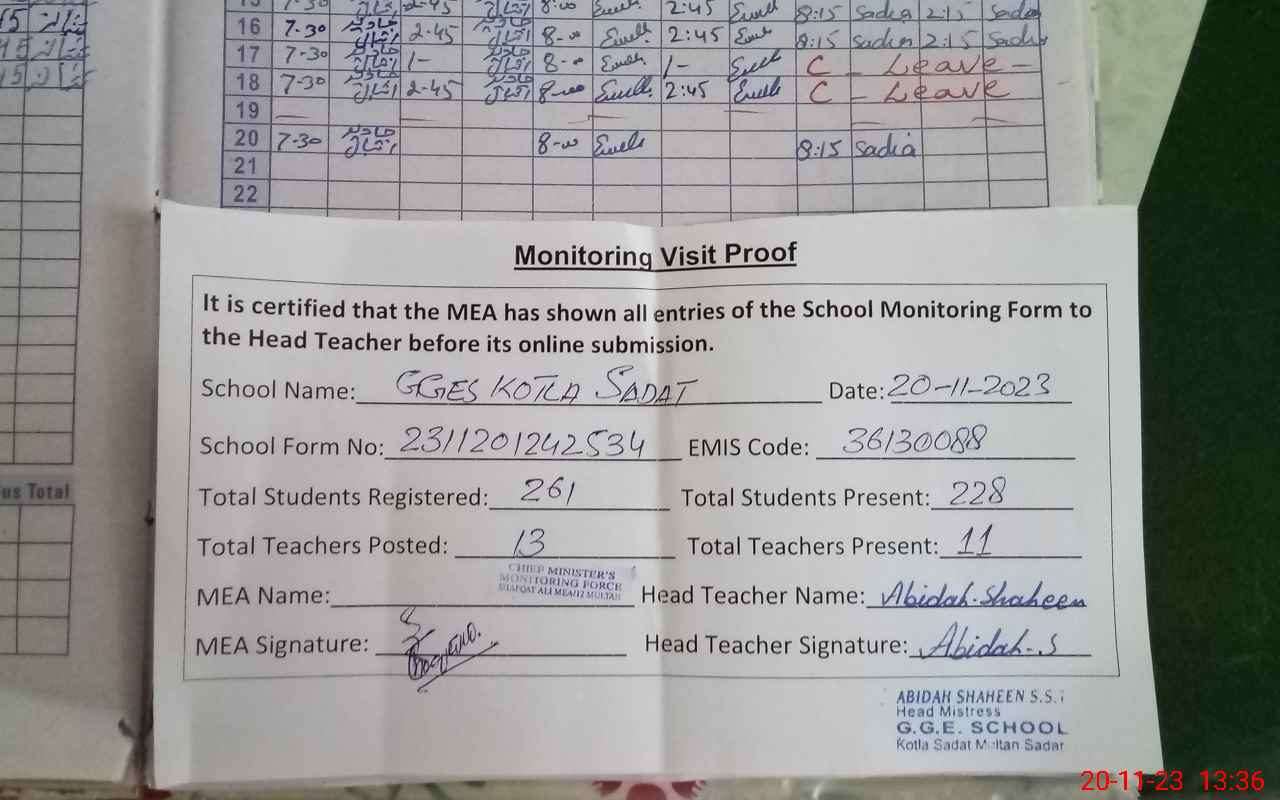 16 7-30 2-45 8-00 2:45 8:15 Sadia 2:15 Sadia
17 7-30 1- 8-00 1- C - Leave -
18 7-30 2-45 8-00 2:45 C - Leave
19
20 7-30 8-00 8:15 Sadia
21
22
us Total
Monitoring Visit Proof
It is certified that the MEA has shown all entries of the School Monitoring Form to
the Head Teacher before its online submission.
School Name: GGES KOTLA SADAT Date: 20-11-2023
School Form No: 2311201242534 EMIS Code: 36130088
Total Students Registered: 261 Total Students Present: 228
Total Teachers Posted: 13 Total Teachers Present: 11
CHIEF MINISTER'S
MONITORING FORCE
MEA Name: Head Teacher Name: Abidah Shaheen
MEA Signature: Head Teacher Signature: Abidah-.S
ABIDAH SHAHEEN S.S.T
Head Mistress
G.G.E. SCHOOL
Kotla Sadat Multan Sadar
20-11-23 13:36